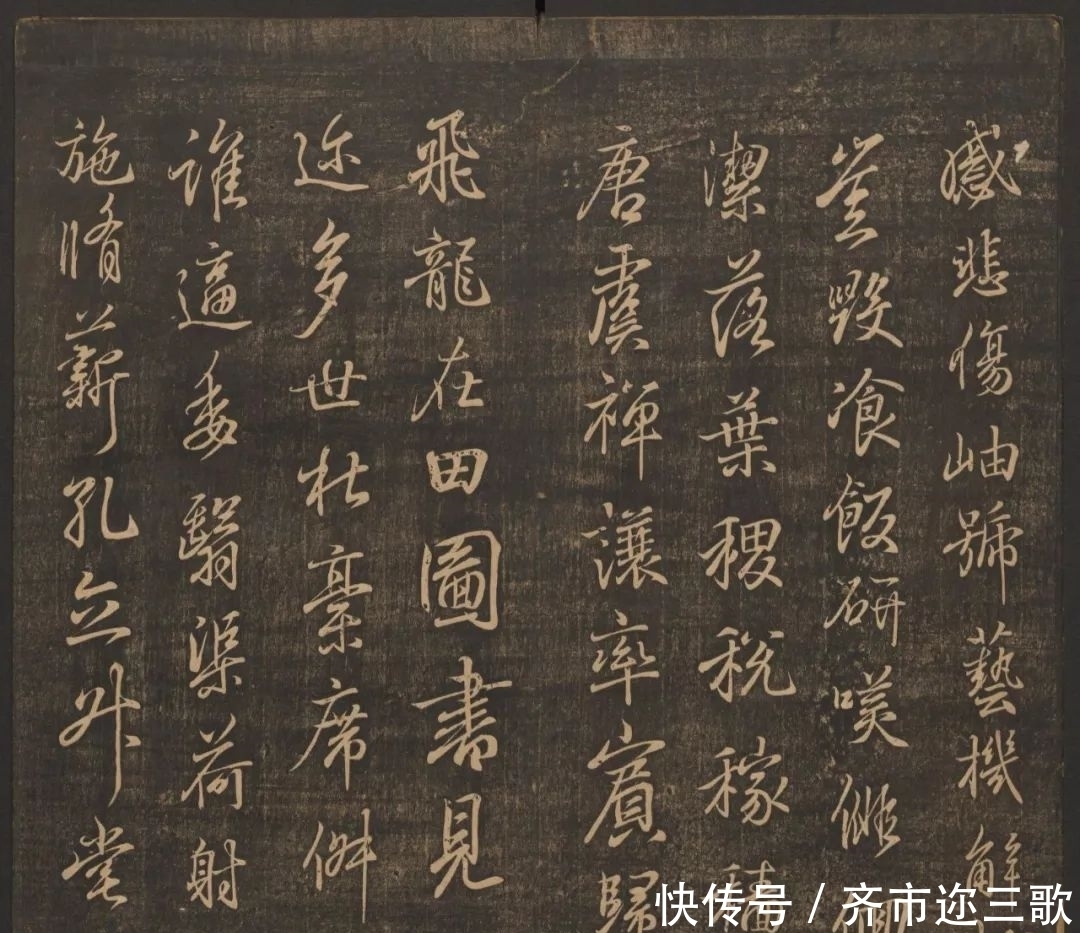 慼悲傷岫號藝機解
毀飡飯研
潔落葉稷稅稼穡
唐虞禪讓率賓歸
飛龍在田圖書見
迩多世杜稾席
誰逼委翳渠荷射
施脩薪孔立堂
快传号 / 齐市迩三歌